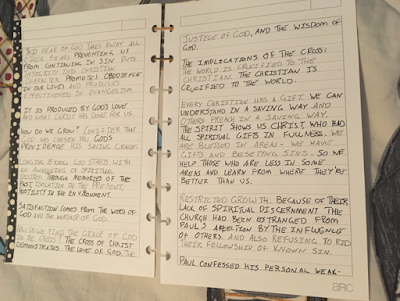 The fear of God takes away all
other fear, preventing us
from continuing in sin, puts
integrity into Christian
character, promotes obedience
in our lives and produces
effectiveness in evangelism.
It is produced by God's love
and what Christ has done for us.
How do we grow? Consider the
God's
providence, his saving grace.
God starts with
an awareness of spiritual
through memories of the
past, isolation in the present,
hostility in the environment.
Satisfaction comes from the word of
God and the worship of God.
How do we find the grace of God
in the cross? The cross of Christ
demonstrates the love of God, the
justice of God, and the wisdom of
God.
The implications of the cross:
The world is crucified to the
Christian. The Christian is
crucified to the world.
Every Christian has a gift. We can
understand in a saving way and
others preach in a saving way.
The Spirit shows us Christ, who had
all spiritual gifts in fullness. We
are blessed in areas - we have
gifts and besetting sins. So we
help those who are less in some
areas and learn from where they're
better than us.
Restricted growth. Because of their
lack of spiritual discernment the
church had been estranged from
Paul's affection by the influence
of others. And also refusing to rid
their fellowship of known sin.
Paul confessed his personal weak-
ARC